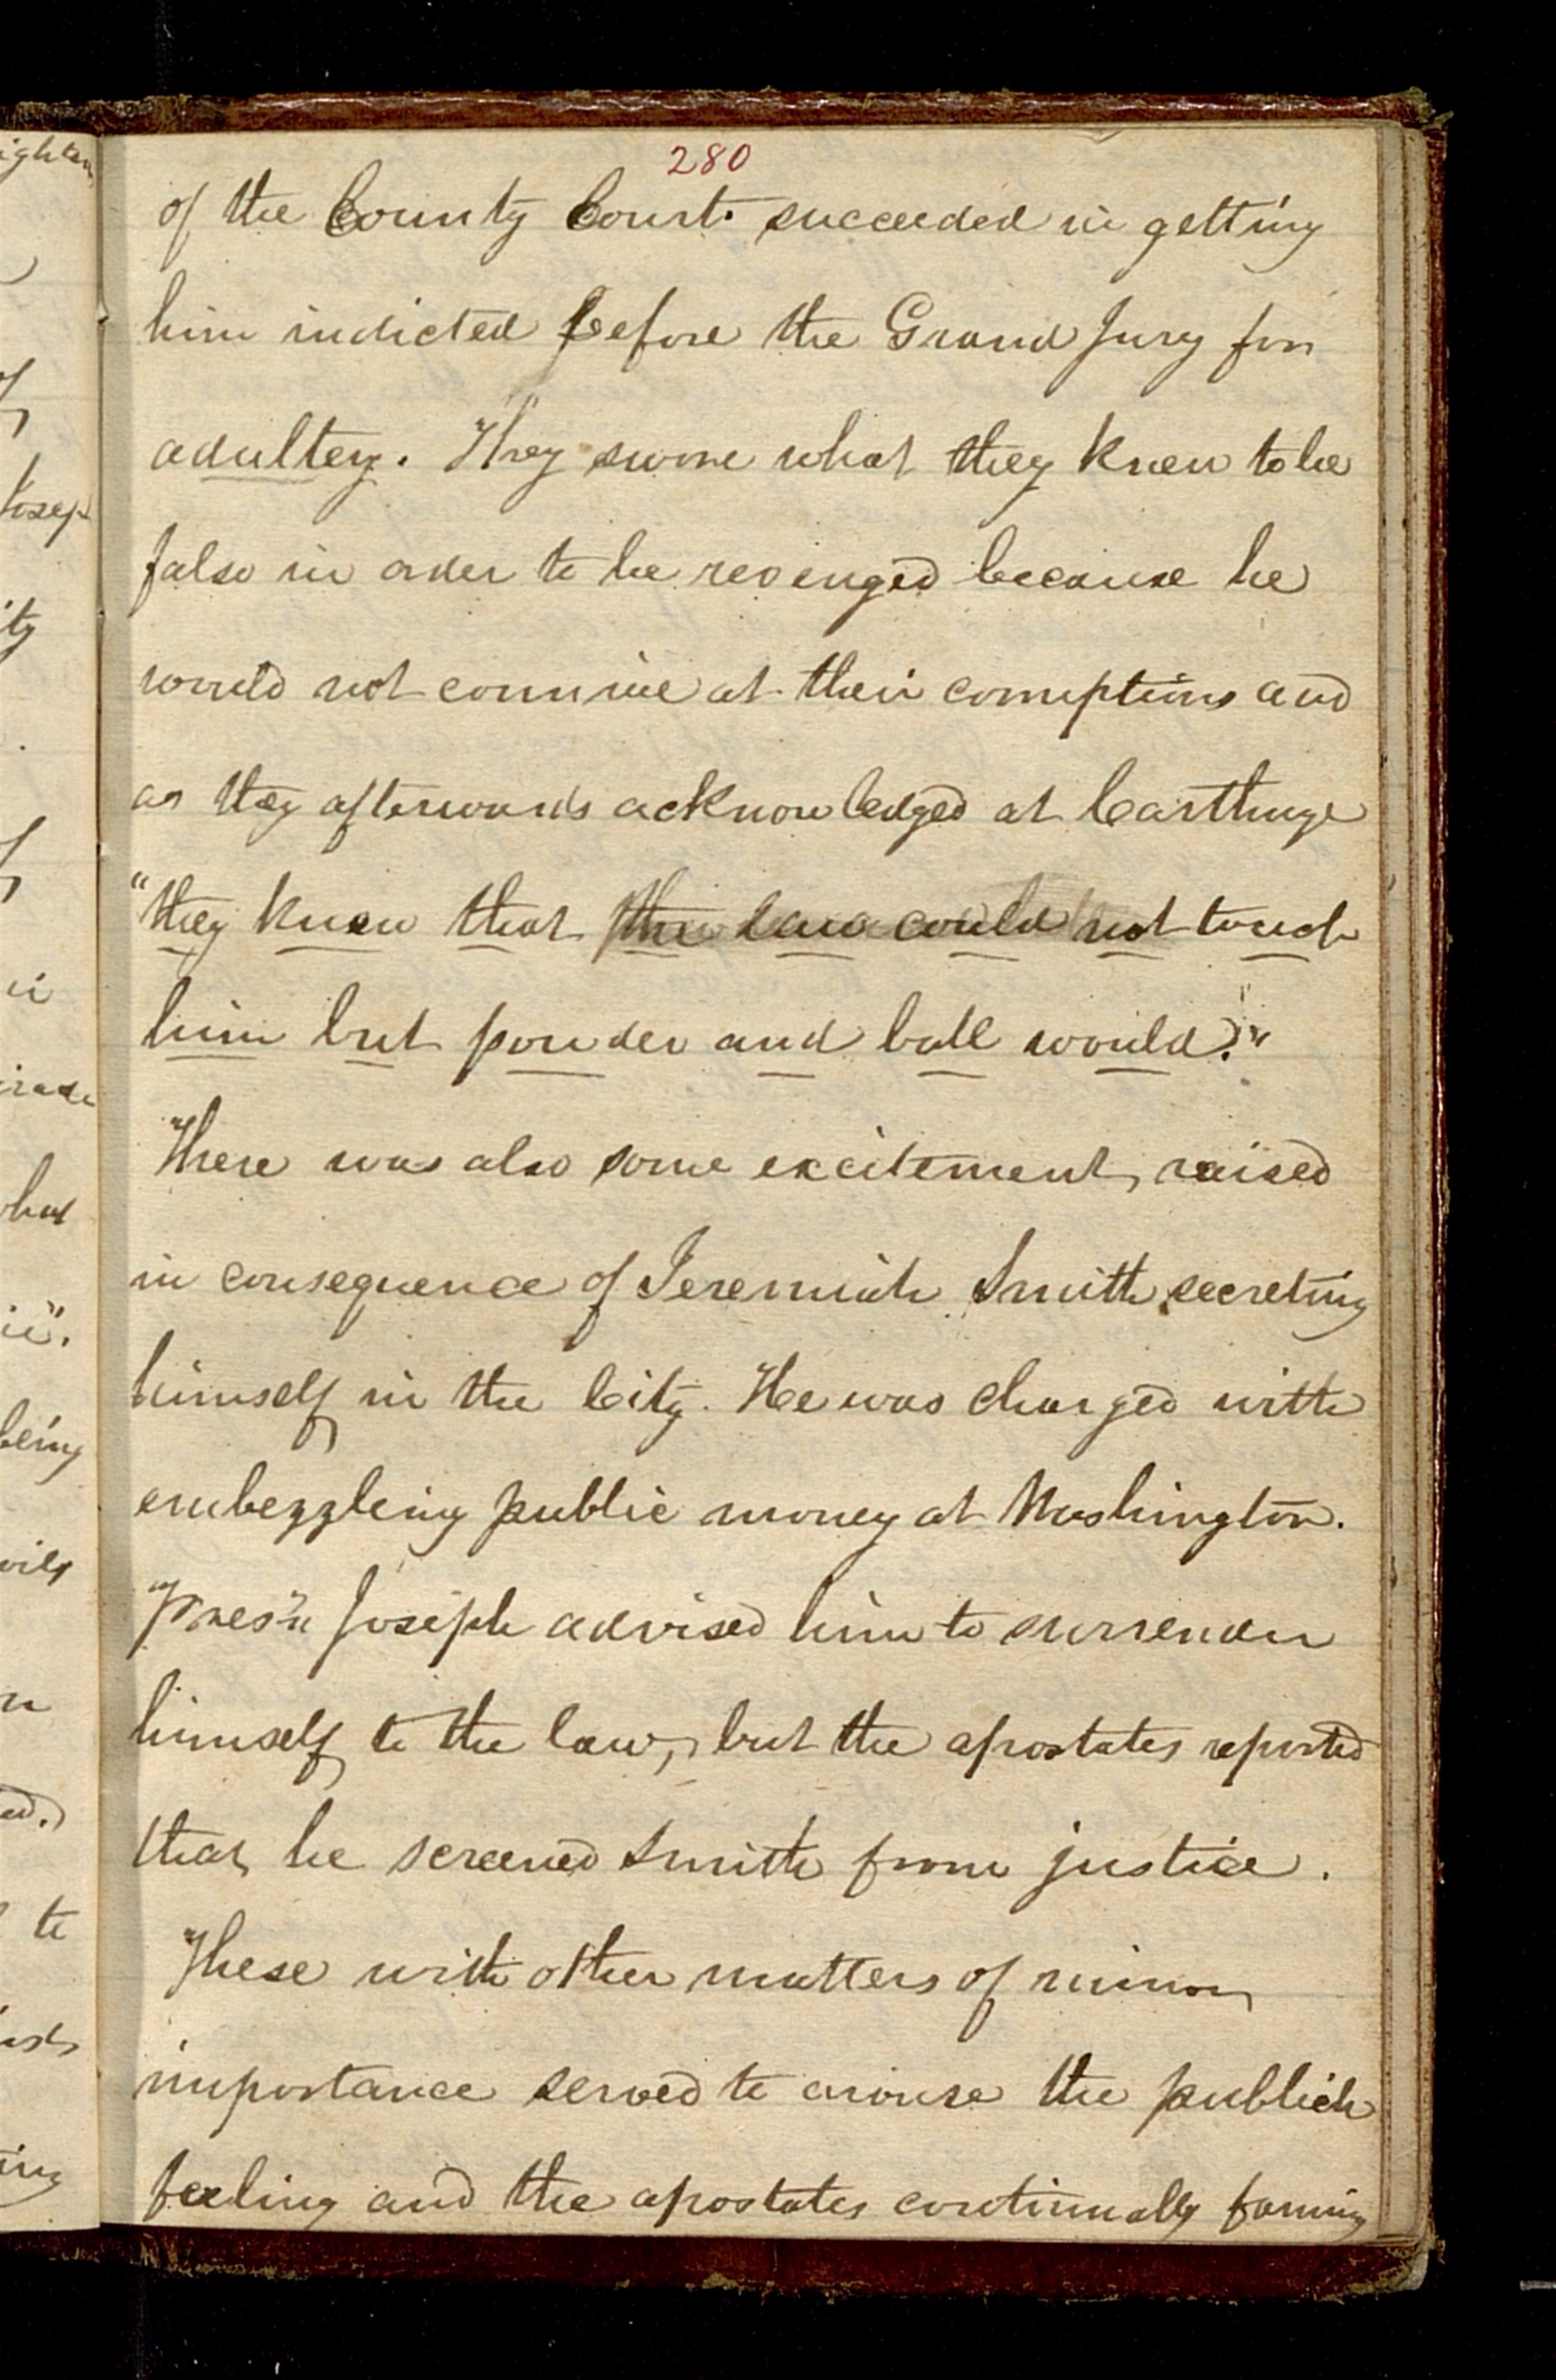 280
of the County Court. succeeded in getting
him indicted before the Grand Jury for
adultery. They swore what they knew to be
false in order to be revenged because he
would not connive at their corruptions and
as they afterwards acknowledged at Carthage
"they knew that the law could not touch
him but powder and ball would."
There was also some excitement, raised
in consequence of Jeremiah Smith secreting
himself in the City. He was charged with
embezzling public money at Washington.
Joseph advised him to surrender
himself to the law, but the apostates reported
that he screened Smith from justice.
These with other matters of minor
importance served to arouse the publich
feeling and the apostates continually faning